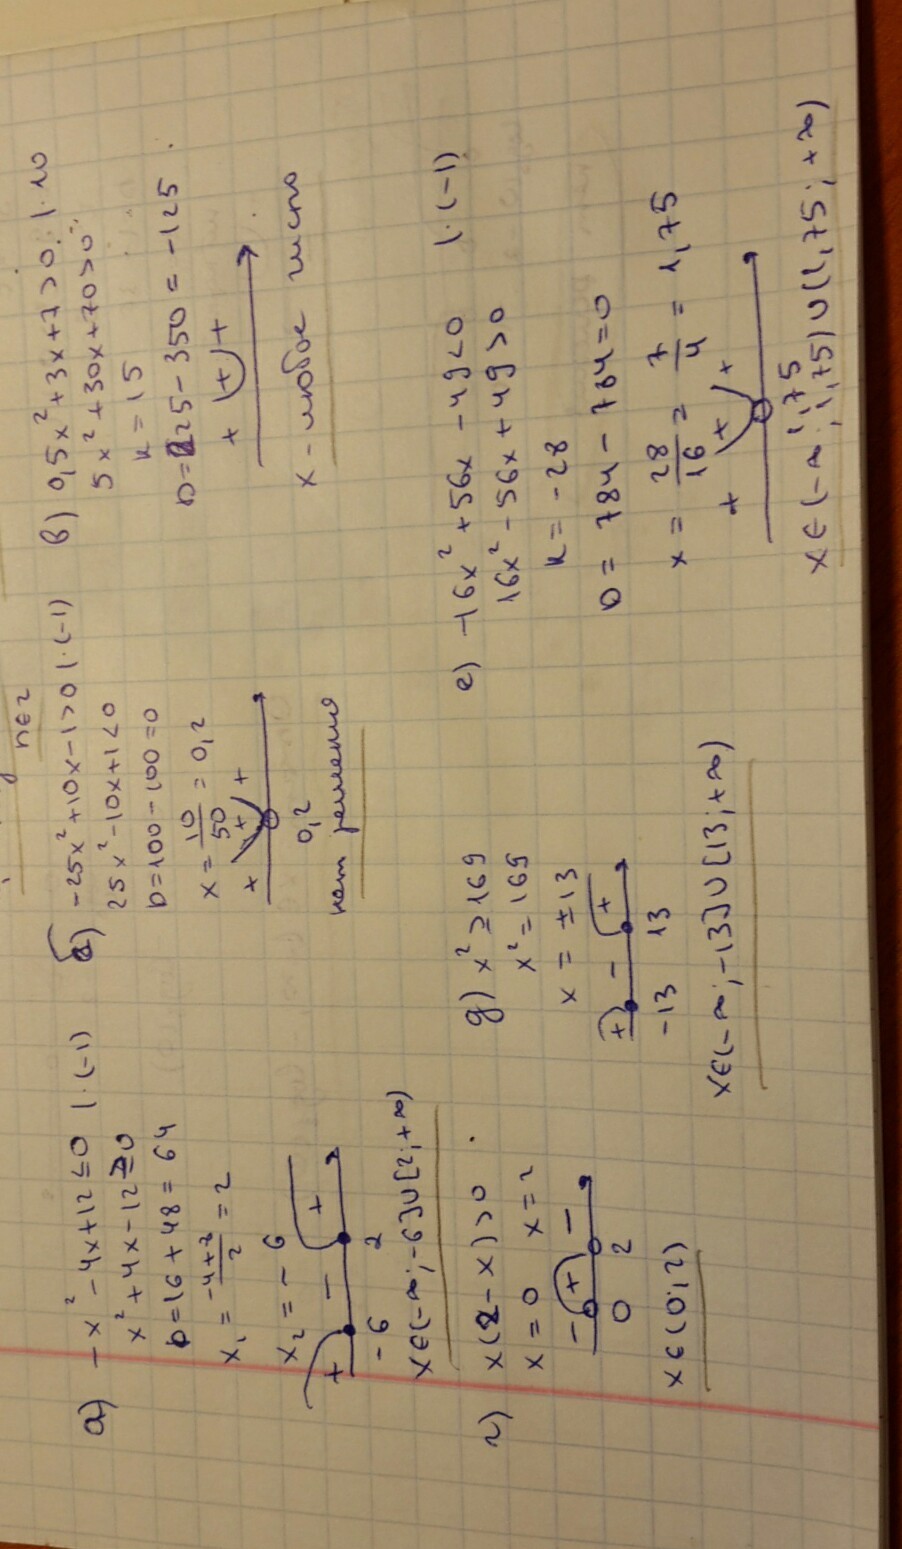 нет
а) -x² - 4x + 12 ≤ 0 | · (-1)
x² + 4x - 12 ≥ 0
D = 16 + 48 = 64
x₁ = (-4+8)/2 = 2
x₂ = -6
+ - +
-6 2
x ∈ (-∞; -6] ∪ [2; +∞)
б) -25x² + 10x - 1 > 0 | · (-1)
25x² - 10x + 1 < 0
D = 100 - 100 = 0
x = 10/50 = 0,2
+ + +
0,2
нет решения
в) 0,5x² + 3x + 7 > 0 | · 10
5x² + 30x + 70 > 0
k = 15
D = 225 - 350 = -125
+ + +
x - любое число
г) x(2 - x) > 0
x = 0 x = 2
- + -
0 2
x ∈ (0; 2)
д) x² ≥ 169
x² = 169
x = ±13
+ - +
-13 13
x ∈ (-∞; -13] ∪ [13; +∞)
е) -16x² + 56x - 49 < 0 | · (-1)
16x² - 56x + 49 > 0
k = -28
D = 784 - 784 = 0
x = 28/16 = 7/4 = 1,75
+ + +
1,75
x ∈ (-∞; 1,75) ∪ (1,75; +∞)